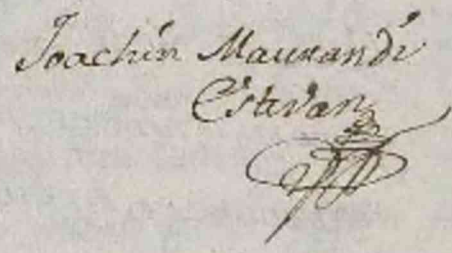 Joachin Maurandi
Estevan